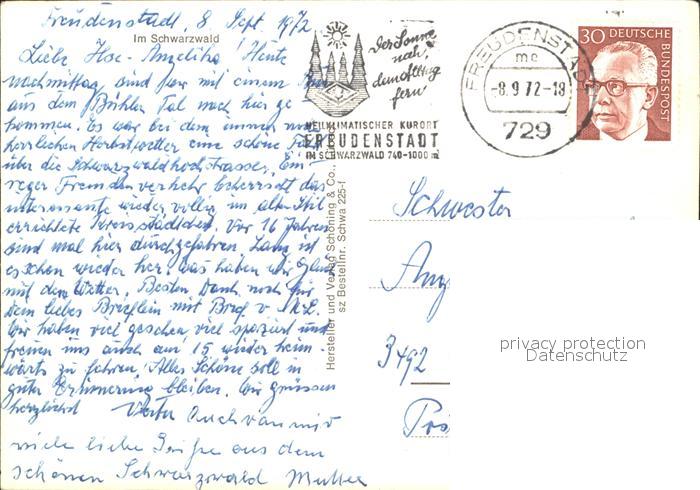 Freudenstadt, 8 Sept. 1972
Im Schwarzwald
Liebe Ilse-Angelika! Heute
nachmittag sind wir mit einem
aus dem Bühler Tal nach hier ge-
kommen. Es war bei dem immer noch
herrlichen Herbstwetter eine schöne Fahrt
über die Schwarzwaldhochstrasse. Ein
reger Fremdenverkehr beherrscht das
interessante wieder völlig im alten Stil
errichtete Kreisstädtchen. Vor 16 Jahren
sind mal hier durchgefahren. Lang ist
es schon wieder her. Was haben wir Glück
mit dem Wetter. Besten Dank noch für
Dein liebes Brieflein mit Brief v.
Wir haben viel gesehen, viel spaziert und
freuen uns auch am 15. wieder heim-
wärts zu fahren. Alles Schöne soll in
guter Erinnerung bleiben. Wir grüssen
herzlichst Vater Auch von mir
viele liebe Grüße aus dem
schönen Schwarzwald Mutter
Der Sonne
nah,
dem Alltag
fern
HEILKLIMATISCHER KURORT
FREUDENSTADT
IM SCHWARZWALD 740-1000 m
FREUDENSTADT
mc
-8.9.72-18
729
30 DEUTSCHE
BUNDESPOST
Hersteller und Verlag Schöning & Co.,
sz Bestellnr. Schwa 225-f
Schwester
Ang
3492
Pos
privacy protection
Datenschutz